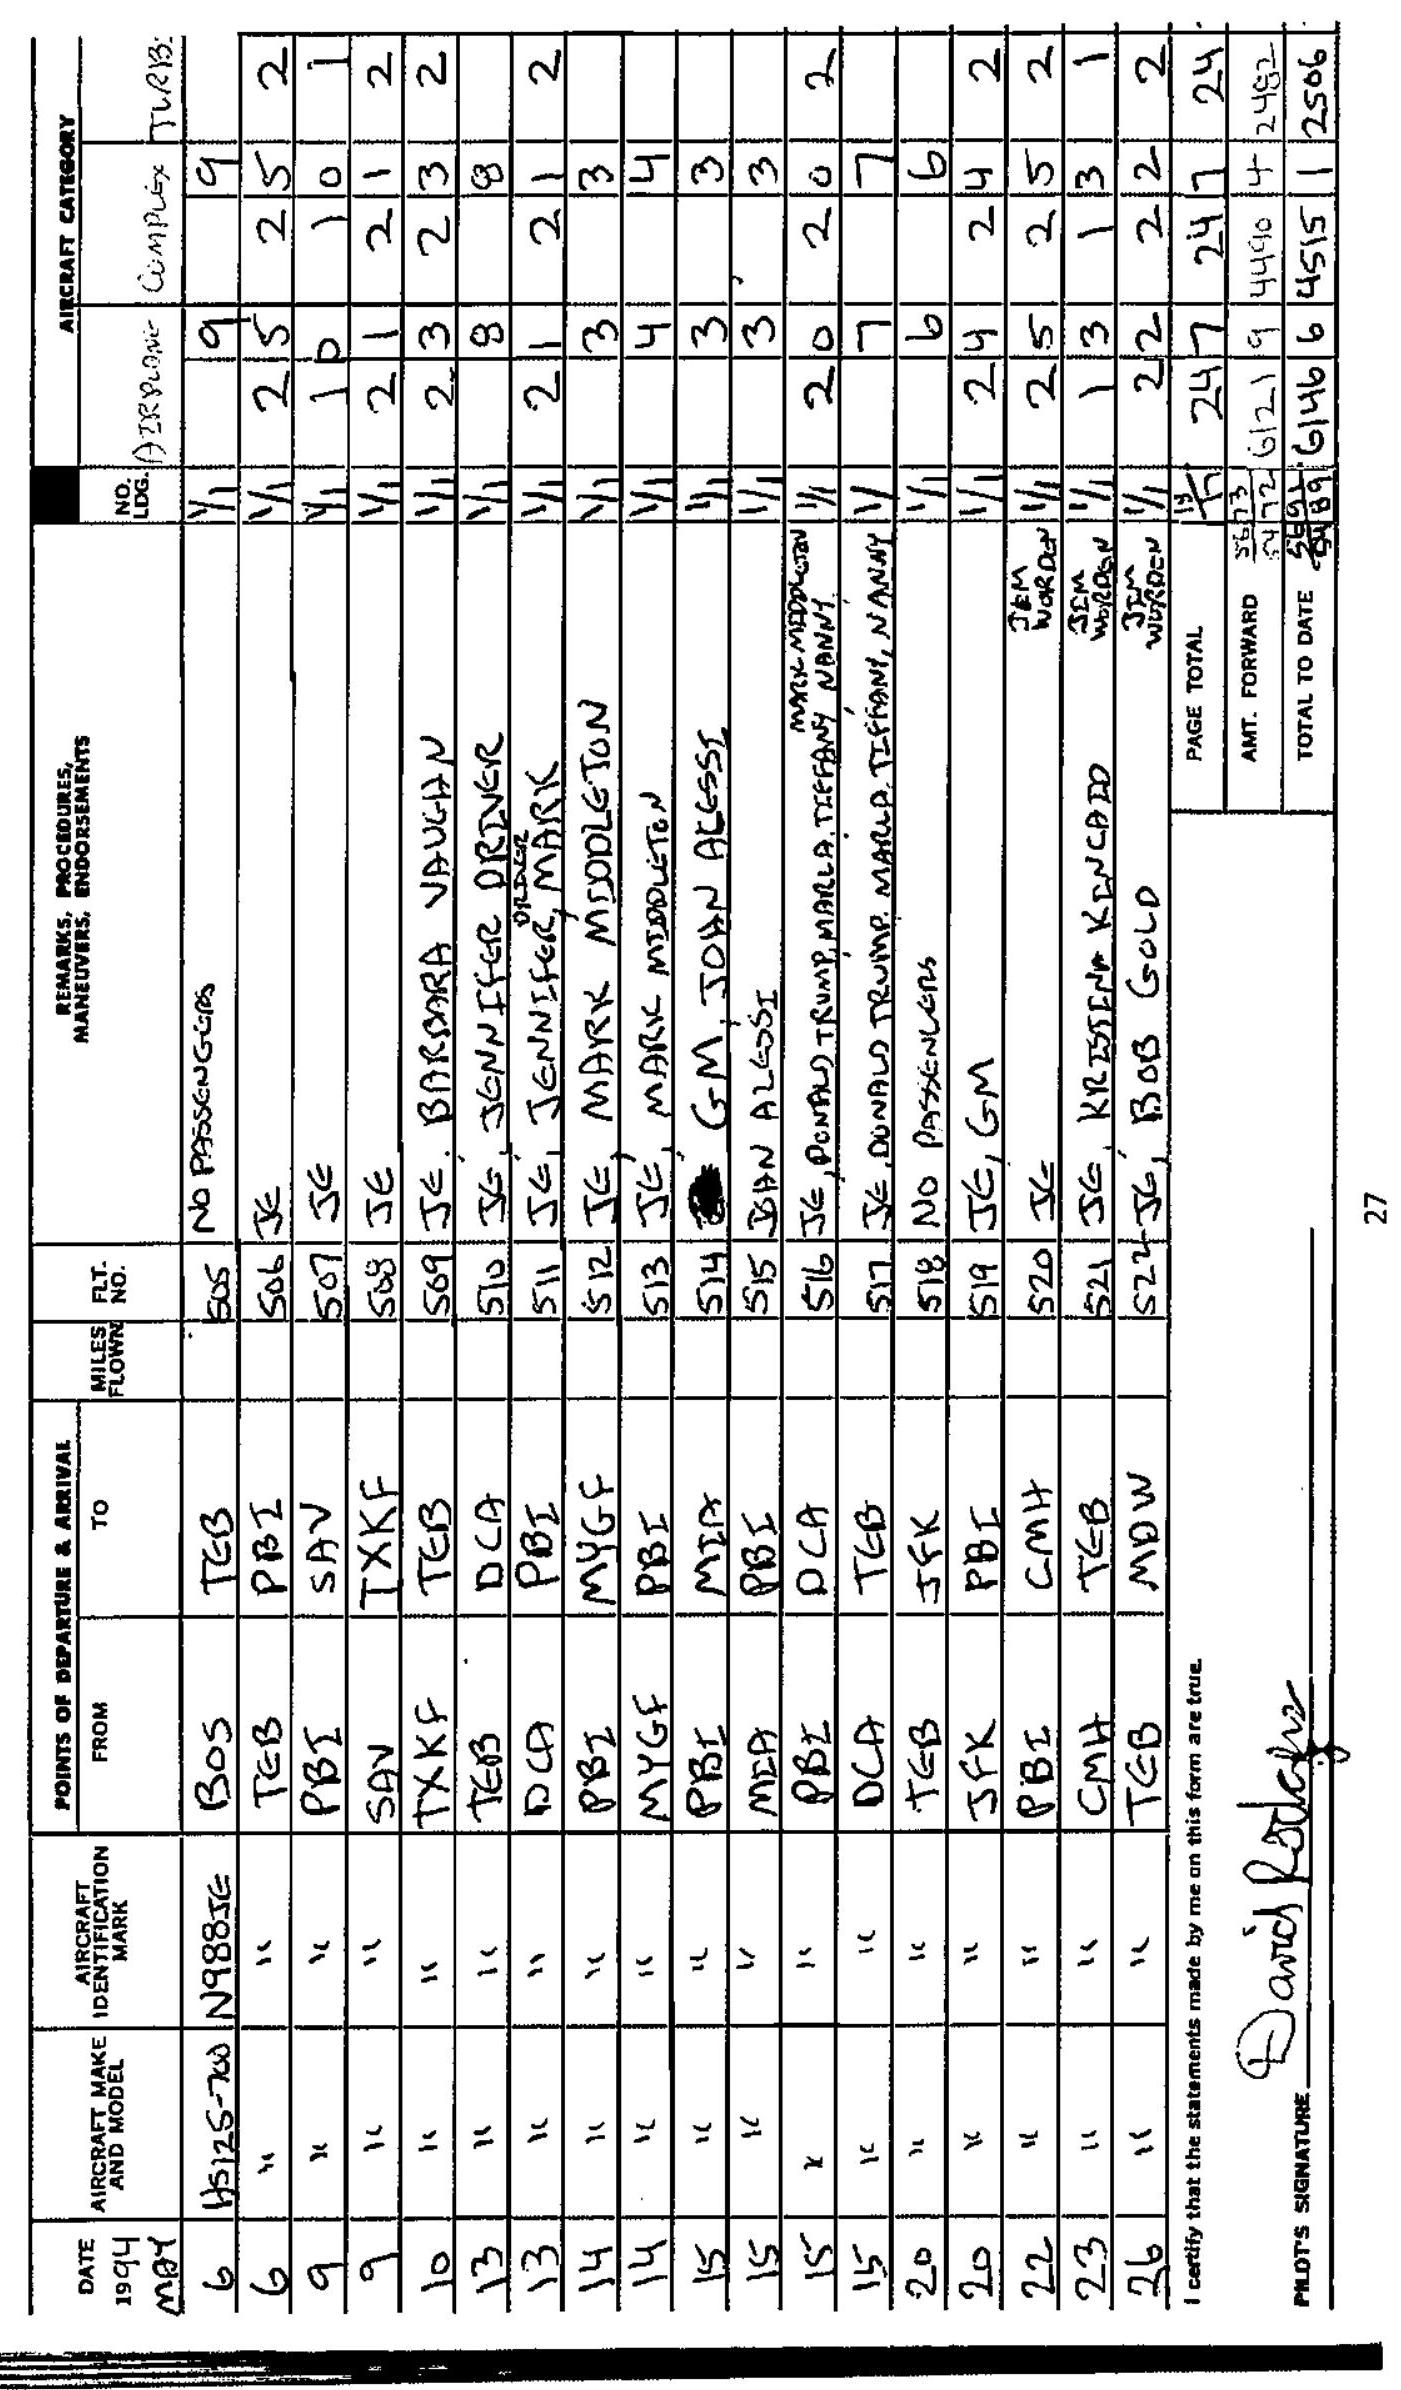 DATE 1994 AIRCRAFT MAKE AND MODEL AIRCRAFT IDENTIFICATION MARK POINTS OF DEPARTURE & ARRIVAL FROM TO MILES FLOWN FLT. NO. REMARKS, PROCEDURES, MANEUVERS, ENDORSEMENTS NO. LDG. AIRCRAFT CATEGORY AIRPLANE COMPLEX TURB.
MAY
6 HS125-700 N988JE BOS TEB 505 NO PASSENGERS 1/1 9 9
6 " " TEB PBI 506 JE 1/1 2 5 2 5 2
9 " " PBI SAV 507 JE 1/1 1 0 1 0 1
9 " " SAV TXKF 508 JE 1/1 2 1 2 1 2
10 " " TXKF TEB 509 JE, BARBARA VAUGHN 1/1 2 3 2 3 2
13 " " TEB DCA 510 JE, JENNIFER DRIVER 1/1 8 8
13 " " DCA PBI 511 JE, JENNIFER DRIVER, MARK 1/1 2 1 2 1 2
14 " " PBI MYGF 512 JE, MARK MIDDLETON 1/1 3 3
14 " " MYGF PBI 513 JE, MARK MIDDLETON 1/1 4 4
15 " " PBI MIA 514 GM, JOHN ALESSI 1/1 3 3
15 " " MIA PBI 515 JOHN ALESSI 1/1 3 3
15 " " PBI DCA 516 JE, DONALD TRUMP, MARLA, TIFFANY NANNY MARK MIDDLETON 1/1 2 0 2 0 2
15 " " DCA TEB 517 JE, DONALD TRUMP, MARLA, TIFFANY, NANNY 1/ 7 7
20 " " TEB JFK 518 NO PASSENGERS 1/1 6 6
20 " " JFK PBI 519 JE, GM 1/1 2 4 2 4 2
22 " " PBI CMH 520 JE JIM WORDEN 1/1 2 5 2 5 2
23 " " CMH TEB 521 JE, KRISTINA KINCAID JIM WORDEN 1/1 1 3 1 3 1
26 " " TEB MDW 522 JE, BOB GOLD JIM WORDEN 1/1 2 2 2 2 2
I certify that the statements made by me on this form are true. PAGE TOTAL 24 7 24 7 24
AMT. FORWARD 5673 5472 6121 9 4490 4 2482
PILOT'S SIGNATURE David Rodgers TOTAL TO DATE 5691 5489 6146 6 4515 1 2506
27